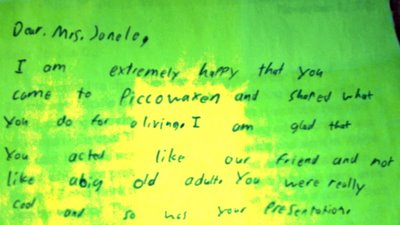 Dear. Mrs. Janele,
I am extremely happy that you
came to Piccowaxen and shared what
You do for a living. I am glad that
You acted like our friend and not
like a big old adult. You were really
cool and so was your presentation.